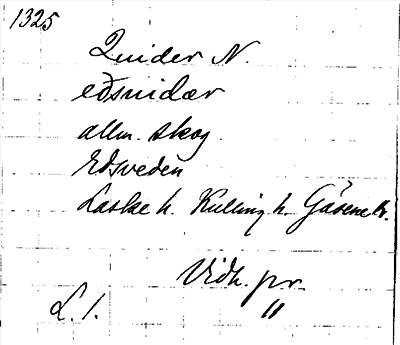 1325
Quider N.
eðsuidær
allm. skog
Edsveden
Laske h. Kulling h. Gäsene h.
Vidh. pr.
L. 1. "